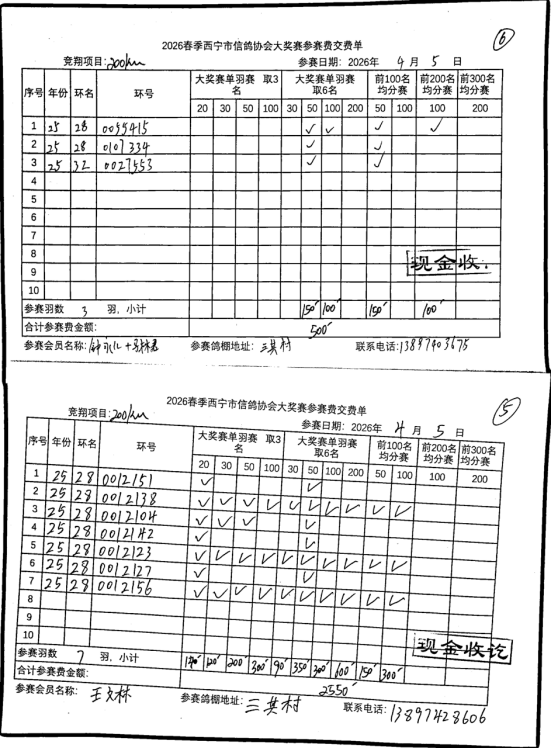 ⑥
2026春季西宁市信鸽协会大奖赛参赛费交费单
竞翔项目:200km 参赛日期: 2026年 4 月 5 日
序号 年份 环名 环号 大奖赛单羽赛 取3名 大奖赛单羽赛 取6名 前100名均分赛 前200名均分赛 前300名均分赛
20 30 50 100 30 50 100 200 50 100 100 200
1 25 28 0055415 ✓ ✓ ✓ ✓
2 25 28 0107334 ✓ ✓
3 25 32 0027553 ✓ ✓
4
5
6
7
8
9
10
现金收
参赛羽数 3 羽, 小计 150 100 150 100
合计参赛费金额: 500
参赛会员名称: 参赛鸽棚地址: 三其村 联系电话:13897403675
⑤
2026春季西宁市信鸽协会大奖赛参赛费交费单
竞翔项目:200km 参赛日期: 2026年 4 月 5 日
序号 年份 环名 环号 大奖赛单羽赛 取3名 大奖赛单羽赛 取6名 前100名均分赛 前200名均分赛 前300名均分赛
20 30 50 100 30 50 100 200 50 100 100 200
1 25 28 0012151 ✓ ✓
2 25 28 0012138 ✓ ✓ ✓ ✓ ✓ ✓ ✓ ✓ ✓ ✓
3 25 28 0012104 ✓ ✓ ✓ ✓
4 25 28 0012142 ✓ ✓
5 25 28 0012123 ✓ ✓ ✓ ✓ ✓ ✓ ✓ ✓ ✓ ✓
6 25 28 0012127 ✓ ✓
7 25 28 0012156 ✓ ✓ ✓ ✓ ✓ ✓ ✓ ✓ ✓ ✓
8
9
10
现金收讫
参赛羽数 7 羽, 小计 140 120 200 300 90 350 300 600 150 300
合计参赛费金额: 2550
参赛会员名称: 王文林 参赛鸽棚地址: 三其村 联系电话: 13897428606